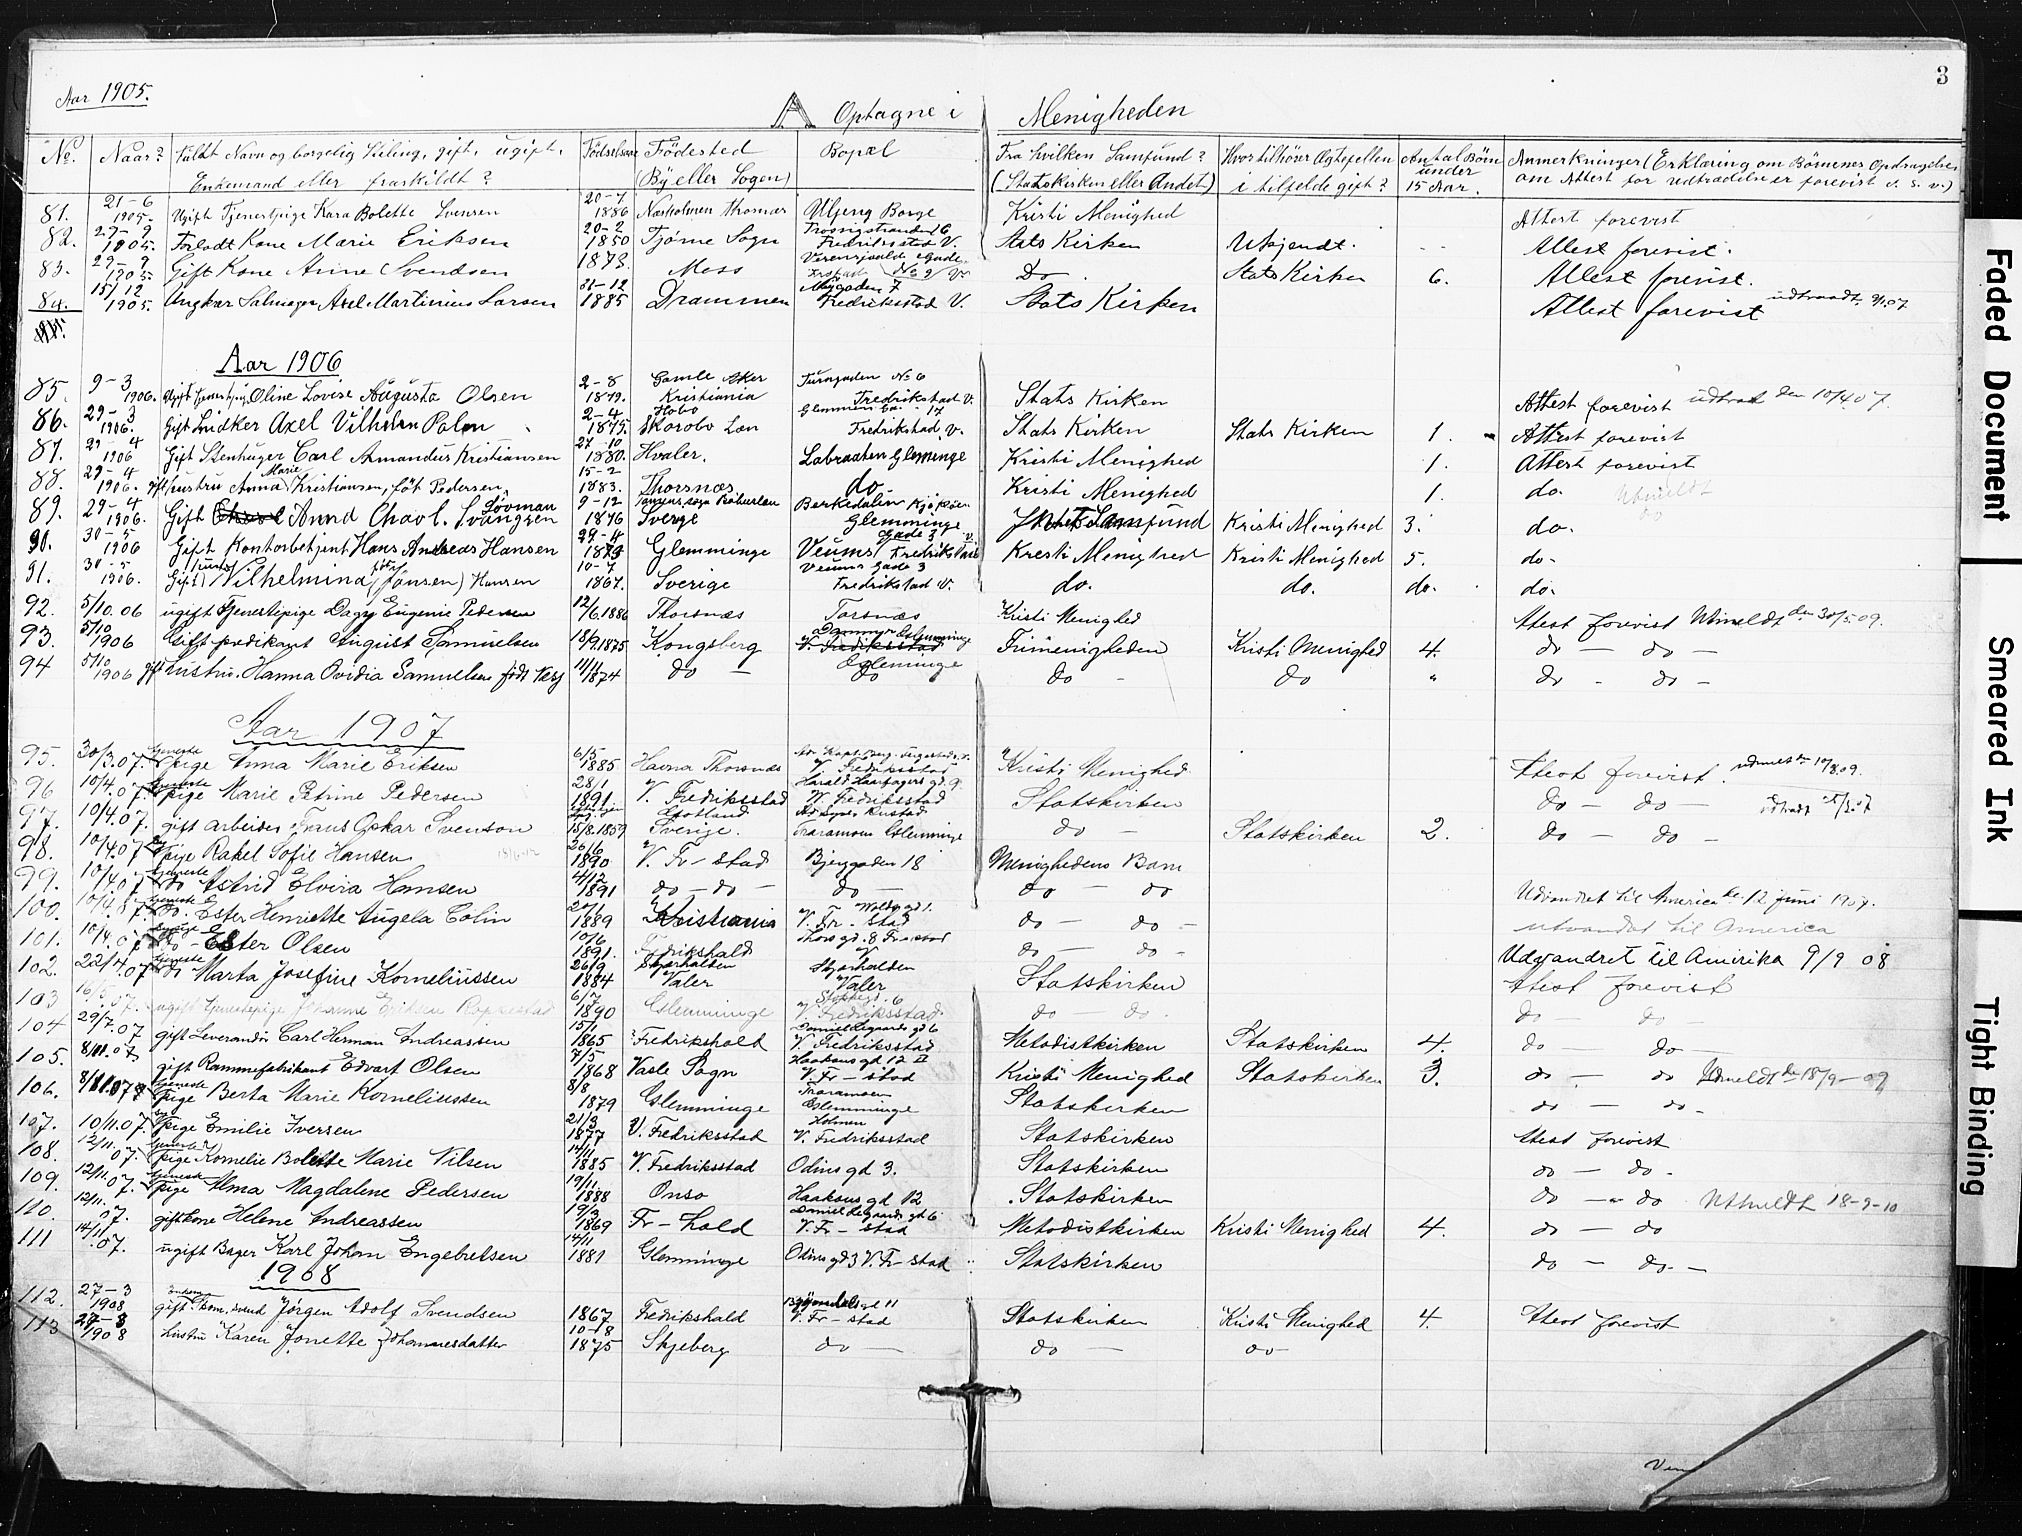 3
Aar 1905.
A Optagne i Menigheden
No. Naar? Fuldt Navn og borgelig Stiling, gift, ugift, Fødselsaar Fødested Bopæl Fra hvilken Samfund? Hvor tilhører Ægtefellen Antal Børn Anmerkninger (Erklæring om Børnenes Opdragelse
Enkemand eller fraskildt? (By eller Sogen) (Statskirken eller Andet) i tilfelde gift? under 15 Aar. om Attest for Udtrædelse er forevist o. s. v.)
81. 21-6 1905. Ugift Tjenestpige Kara Bolette Svensen 20-7 1886 Borge Kristi Menighed Attest forevist
82. 29-9 1905. Forladt Kone Marie Eriksen 20-2 1850 Tjøme Sogn Fredriksstad V. Stats Kirken Ukjendt. Attest forevist.
83. 29-9 1905. Gift Kone Anne Svendsen 1873. Moss No 2 V. Do Stats Kirken 6. Attest forevist.
84. 15/12 1905. Ungkar Salmager Axel Martinius Larsen 31-12 1885 Drammen Nygaden 7 Fredriksstad V. Stats Kirken Attest forevist udtraadt 9/1.07
Aar 1906
85. 9-3 1906. Ugift Tjenestpig Oline Lovise Augusta Olsen 2-8 1879. Gamle Aker Kristiania Turngaden No 6 Fredrikstad V. Stats Kirken Attest forevist udtraat den 10/4.07.
86. 29-3 1906. Gift Axel Vilhelm Palm 2-4 1875. Hobo Skarabo Læn Glemmen Ga. 17 Fredrikstad V. Stats Kirken Stats Kirken 1. Attest forevist
87. 29-4 1906 Gift Stenhuger Carl Armandus Kristiansen 27-10 1880. Hvaler. Labraaten Glemminge Kristi Menighed 1. Attest forevist
88. 29-4 1906. gift hustru Anna Marie Kristiansen, føt Pedersen. 15-2 1883. Thorsnæs do. Kristi Menighed 1. do. Utmeldt
89. 29-4 1906. Gift Anna Charl. Svanggren Løvman 9-12 1876 Sverge Kjøkøen Glemminge Samfund Kristi Menighed 3. do.
90. 30-5 1906 Gift Kontorbetjent Hans Andreas Hansen 29-4 1873 Glemminge Veums Gade 3 Fredrikstad V. Kresti Menighed Kristi Menighed 5. do-
91. 30-5 1906. Gift hustru Vilhelmina (føt Jansen) Hansen 10-7 1867. Sverige Veums Gade 3 Fredrikstad V. do. do. do. do.
92. 5/10.06 ugift Tjenestepige Dagny Eugenie Pedersen 12/6.1886 Thorsnæs Torsnæs Kristi Menighed Attest forevist Utmeldt den 30/5.09.
93. 5/10 1906 Gift predikant August Samuelsen 18/9.1875 Kongsberg V. Fredriksstad Glemminge Frimenigheden Kristi Menighed 4. do — do —
94 5/10 1906 gift hustru. Hanna Ovidia Samuelsen født 11/1 1874 do — Glemminge do do - do " do - do -
Aar 1907
95. 30/3.07. tjeneste pige Anna Marie Eriksen 6/5 1885 Havna Thorsnæs V. Fredriksstad Kristi Menighed Attest forevist. udmelt den 10/8.09.
96 10/4.07. tjeneste pige Marie Petrine Pedersen 28/1 1891. V. Fredriksstad Harald Haarfagers gd. 9. V. Fredriksstad Statskirken do — do — udtradt
97. 10/4.07. gift arbeider Frans Oskar Svenson 15/8.1859 Gotland Sverige. Traramoen Glemminge do — Statskirken 2. do — do
98. 10/4.07 pige Rakel Sofie Hansen 26/6 1890 V. Fr-stad Bjerggaden 18 Menighedens Barn
99. 10/4.07 tjeneste do Astrid Elvira Hansen 4/12 1891 do — do — do — do — do Udvandret til America de. 12 juni 1907.
100. 10/4.07. tjeneste do. Ester Henriette Angela Colin 20/1 1889 Kristiania Wolds gd 1. V. Fr. stad do — do — utvandet til America
101. 10/4.07 do - Ester Olsen 10/6 1891. Fredrikshald Thors gd. 8 Fr-stad V. do — do - Udvandret til Amirika 9/9 08
102. 22/4.07 tjeneste do Marta Josefine Korneliussen 26/9 1884 Skjærhalden Valer Skjærhalden Valer Statskirken Attest forevist
103 16/5.07. ugift tjenestepige Johanne Eriksen 6/7 1890 Glemminge V. Fredriksstad do — do. do do
104 29/7.07 gift Leverandør Carl Herman Andreassen 15/1 1865 Fredrikshald Daniel Legaards gd 6 V. Fredriksstad Metodistkirken Statskirken 4. do do —
105. 8/11.07 gift Rammefabrikant Edvart Olsen 7/5 1868 Vaale Sogn Haakons gd 12 II V. Fr - stad Kristi Menighed Statskirken 3. do — do Utmeldt de 18/9-09
106. 8/11.07 tjeneste pige Berta Marie Korneliussen 8/8 1879 Glemminge Traramoen Glemminge Statskirken do — do -
107. 10/11.07. pige Emilie Iversen 21/3 1877 V. Fredriksstad Holmen V. Fredriksstad Statskirken Attest forevist
108. 12/11.07. tjeneste pige Kornelie Bolette Marie Nilsen 14/11 1885 V. Fredriksstad Odins gd 3. Statskirken do — do -
109. 12/11.07. tjeneste pige Alma Magdalene Pedersen 19/11. 1888 Onsø Haakons gd 12 Statskirken do — do Utmeldt 18-9-10
110. 12/11.07. gift kone Helene Andreassen 19/3 1869 Fr - hald Daniel Legaards gd 6 V. Fr - stad Metodistkirken Kristi Menighed 4. do — do
111 14/11.07. ugift Bager Karl Johan Engebretsen 14/11 1881 Glemminge Odins gd 3 V. Fr - stad Statskirken do — do. —
1908
112. 27-3 1908 gift Jørgen Adolf Svendsen 1867 Fredrikshald V. Fr - stad Statskirken Kristi Menighed 4. Attest forevist
113 27-3 1908 hustru Karen Jonette Johannesdatter 10-18 1875 Skjeberg do — do — do
Faded Document
Smeared Ink
Tight Binding